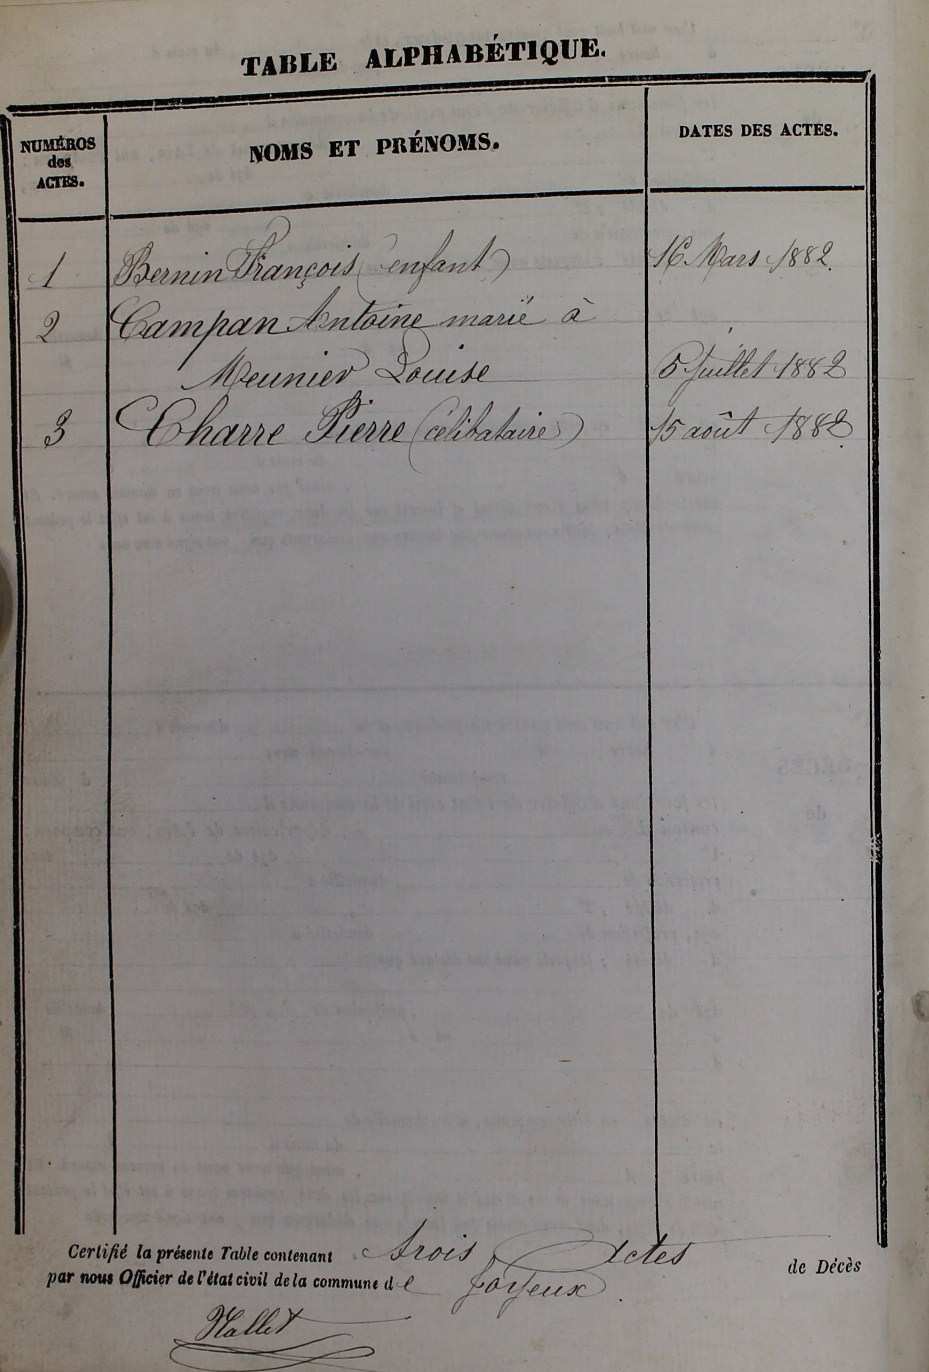 TABLE ALPHABÉTIQUE.
NUMÉROS
des
ACTES.
NOMS ET PRÉNOMS.
DATES DES ACTES.
1 Bernin François (enfant) 16 Mars 1882.
2 Campan Antoine marié à
Meunier Louise 5 Juillet 1882
3 Charre Pierre (célibataire) 15 août 1882.
Certifié la présente Table contenant trois Actes de Décès
par nous Officier de l'état civil de la commune de Joyeux.